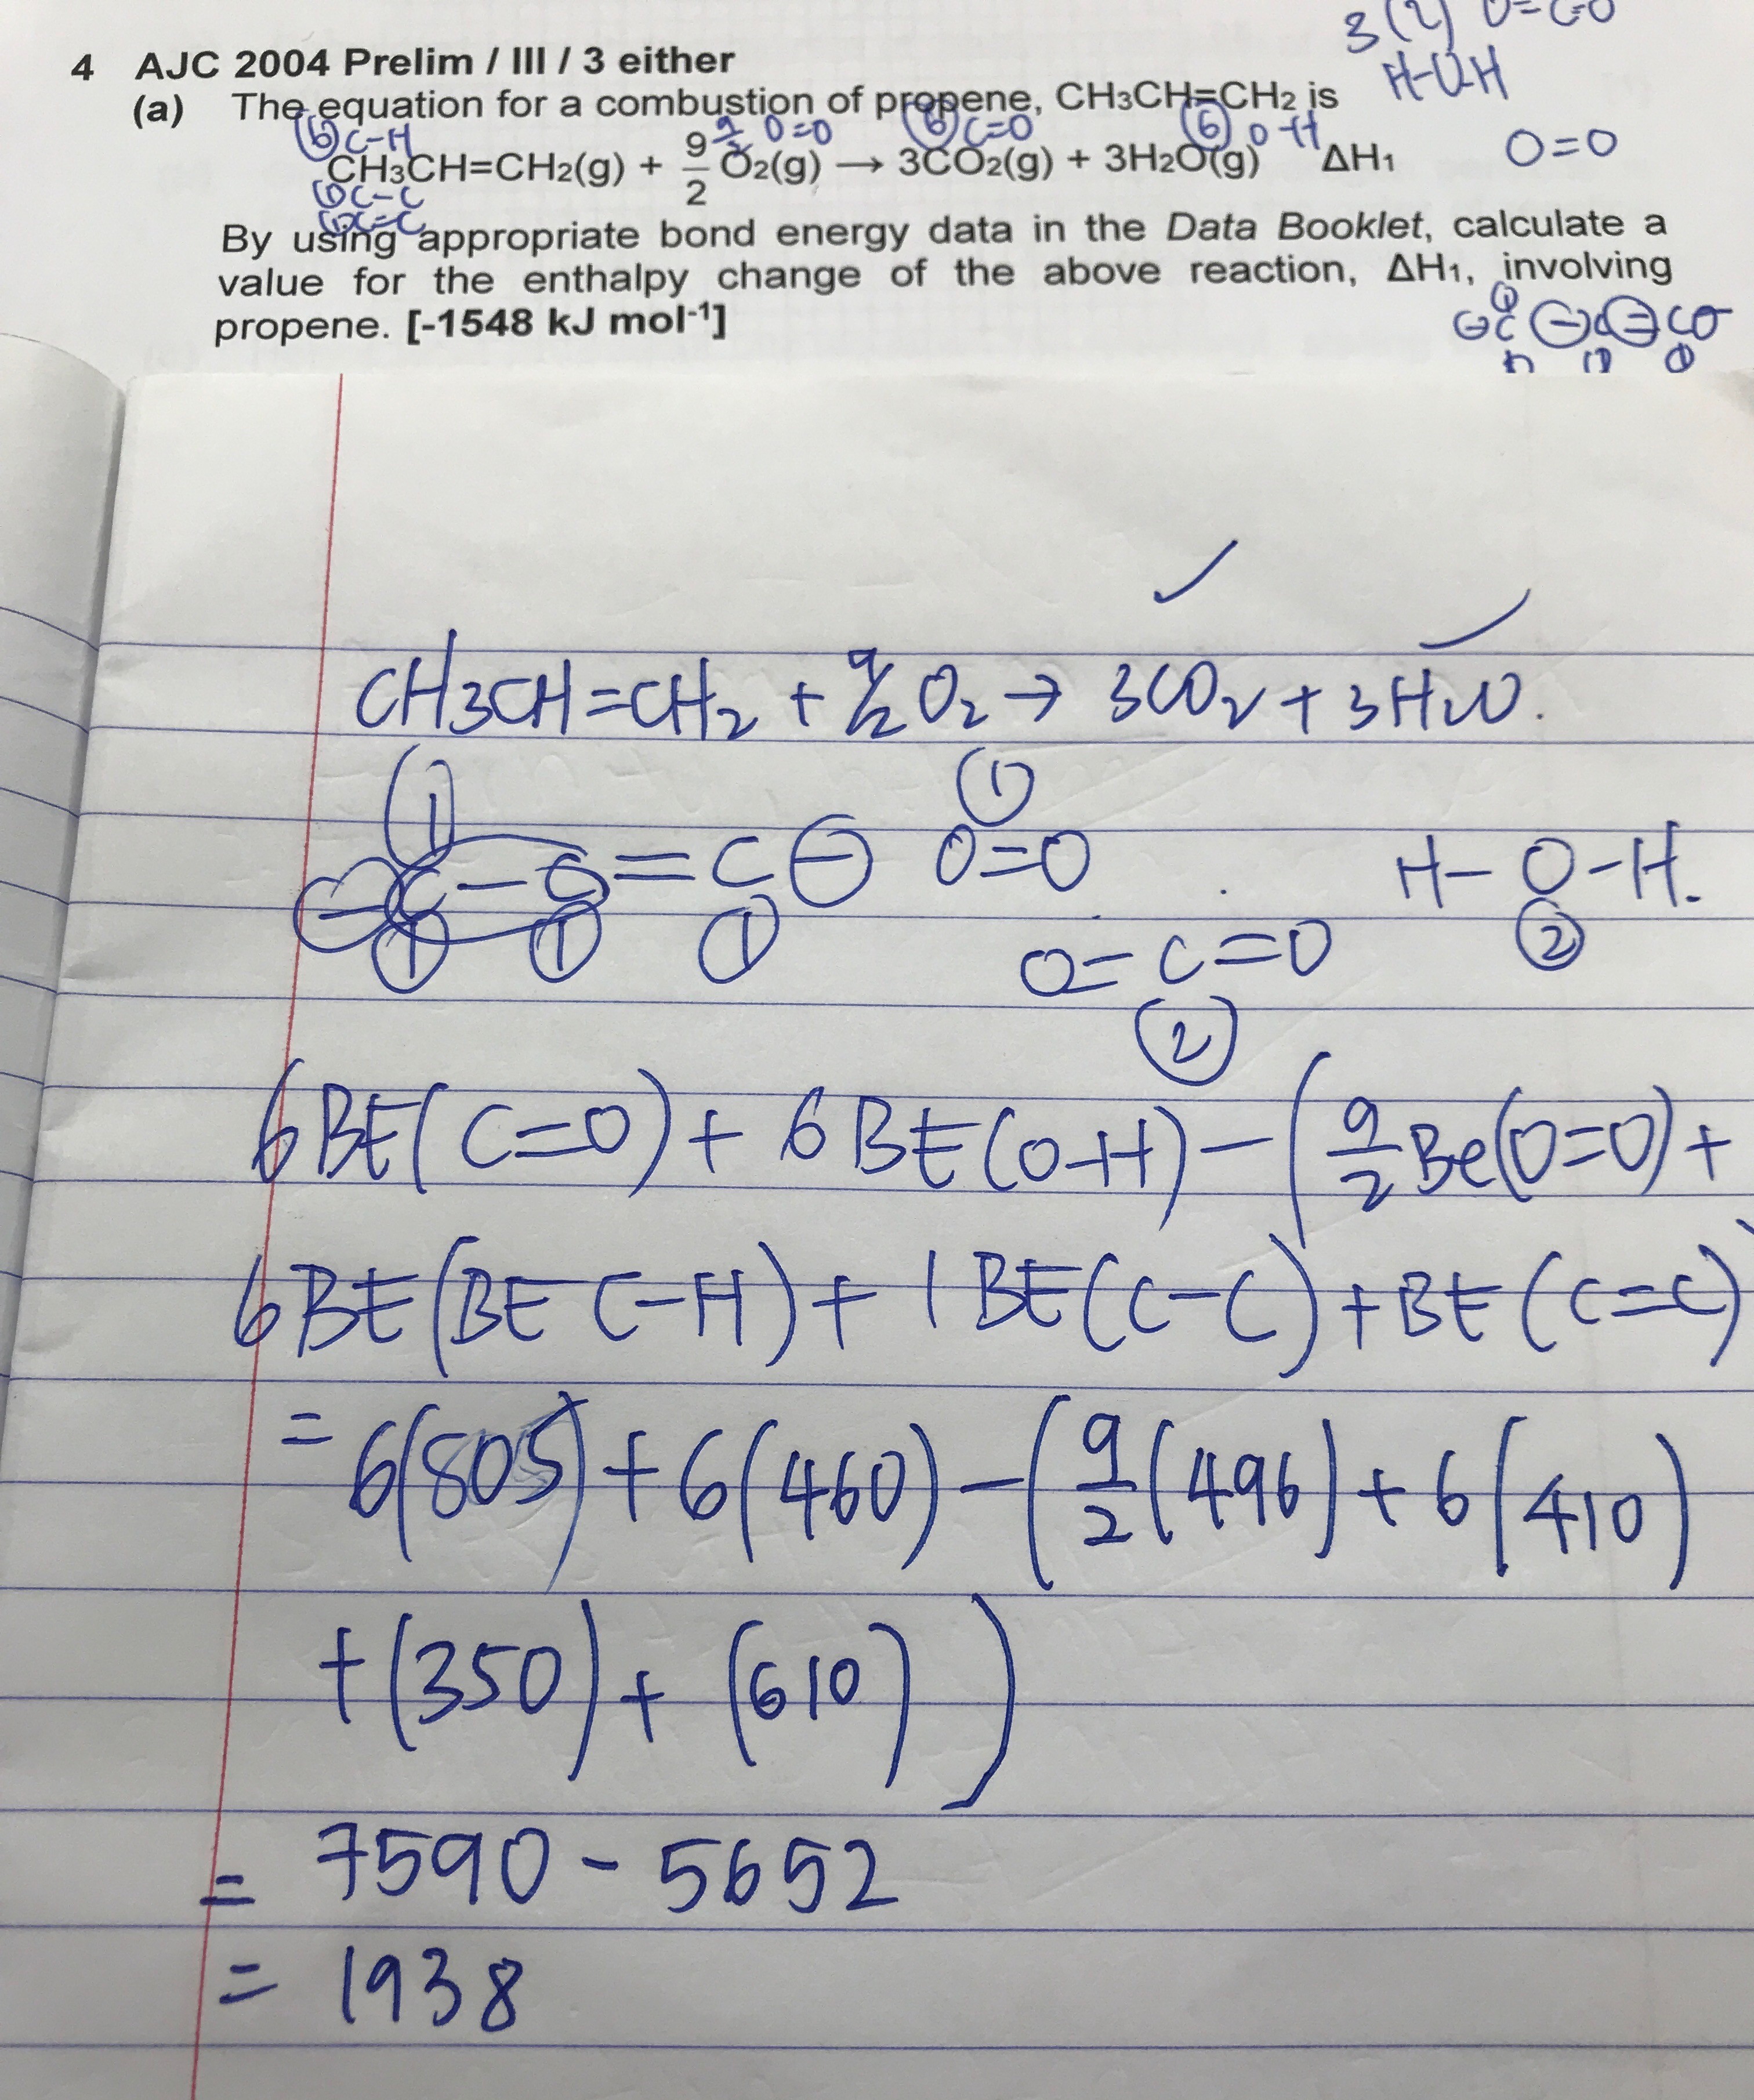 3(2) O=C=O
4 AJC 2004 Prelim / III / 3 either
H-O-H
(a) The equation for a combustion of propene, CH3CH=CH2 is
(6) C-H 9/2 O=O (6) C=O (6) O-H O=O
CH3CH=CH2(g) + 9/2 O2(g) → 3CO2(g) + 3H2O(g) ΔH1
(1) C-C
(1) C=C
By using appropriate bond energy data in the Data Booklet, calculate a
value for the enthalpy change of the above reaction, ΔH1, involving
propene. [-1548 kJ mol-1]
CH3CH=CH2 + 9/2 O2 → 3CO2 + 3H2O.
1 1
-C-C=C- O=O H-O-H.
1 1 1 O=C=O 2
2
6BE(C=O) + 6BE(O-H) - (9/2 Be(O=O) +
6BE(BE C-H) + 1BE(C-C) + BE(C=C))
= 6(805) + 6(460) - (9/2(496) + 6(410)
+ (350) + (610))
= 7590 - 5652
= 1938